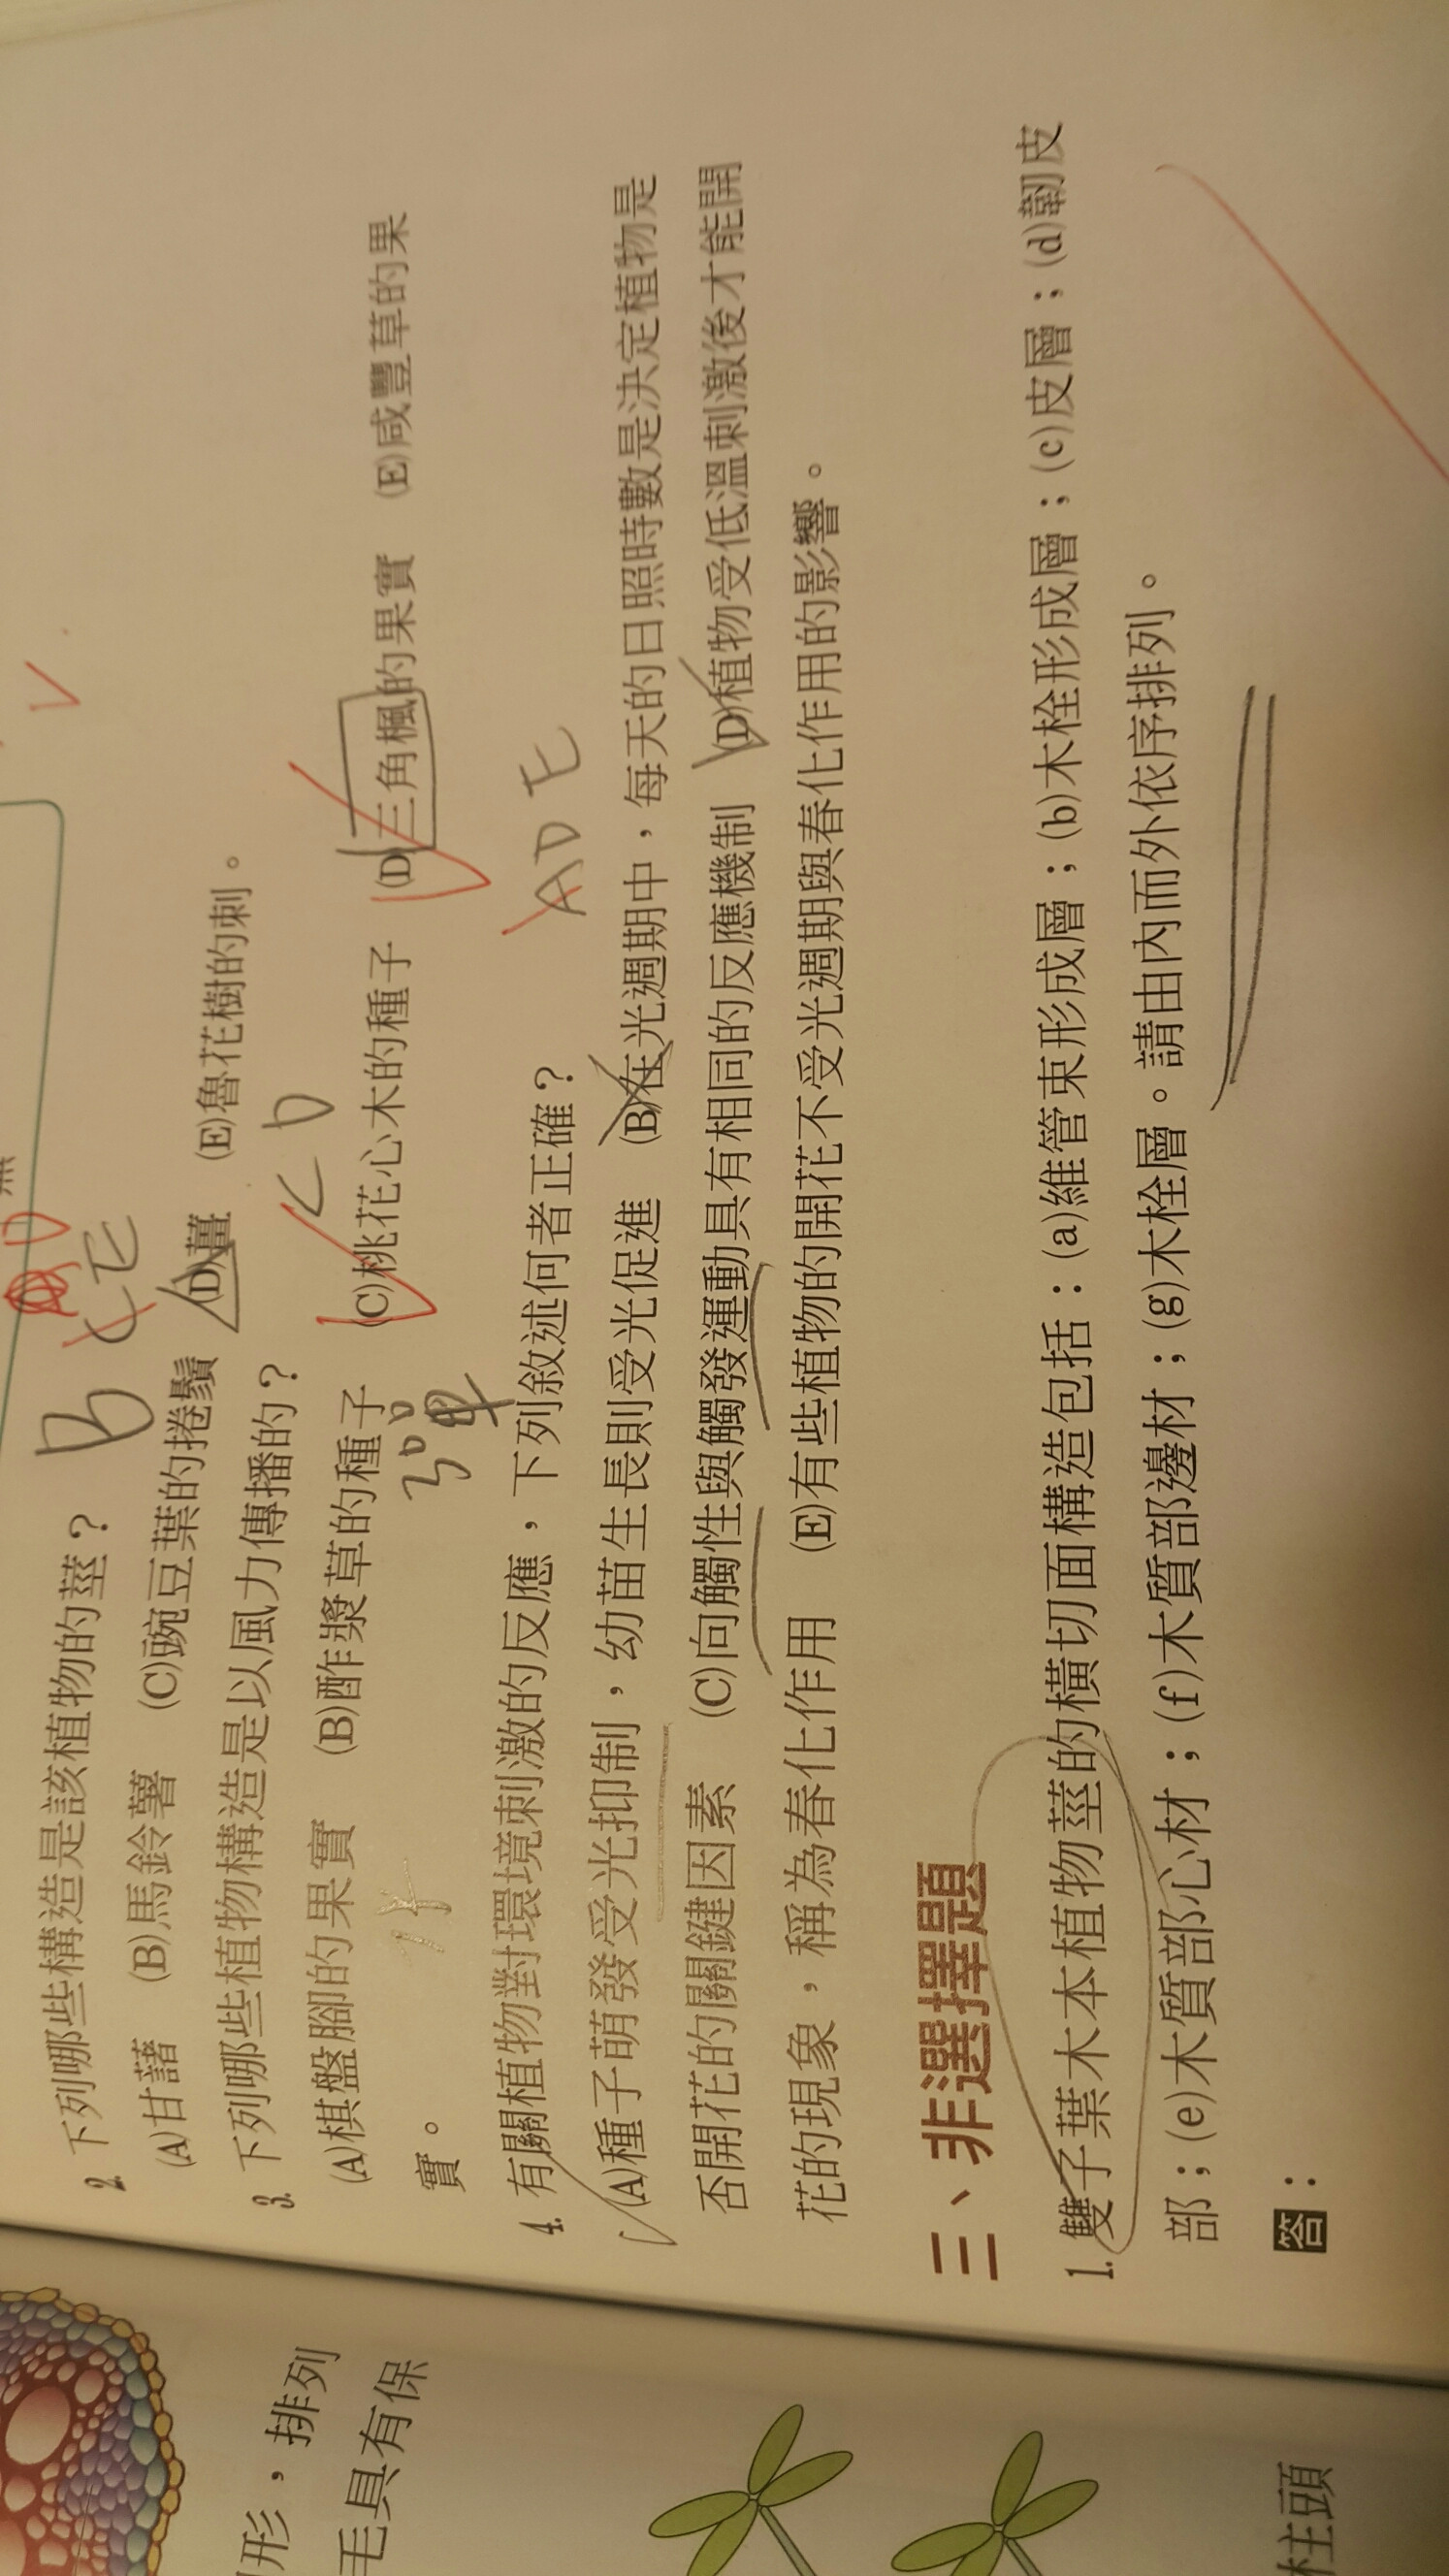 無
2. 下列哪些構造是該植物的莖? B CE
(A)甘藷 (B)馬鈴薯 (C)豌豆葉的捲鬚 (D)薑 (E)魯花樹的刺。
3. 下列哪些植物構造是以風力傳播的? CD
(A)棋盤腳的果實 (B)酢漿草的種子 (C)桃花心木的種子 (D)三角楓的果實 (E)咸豐草的果
實。
彈
ADE
4. 有關植物對環境刺激的反應,下列敘述何者正確?
(A)種子萌發受光抑制,幼苗生長則受光促進 (B)在光週期中,每天的日照時數是決定植物是
否開花的關鍵因素 (C)向觸性與觸發運動具有相同的反應機制 (D)植物受低溫刺激後才能開
花的現象,稱為春化作用 (E)有些植物的開花不受光週期與春化作用的影響。
三、非選擇題
1. 雙子葉木本植物莖的橫切面構造包括:(a)維管束形成層;(b)木栓形成層;(c)皮層;(d)韌皮
部;(e)木質部心材;(f)木質部邊材;(g)木栓層。請由內而外依序排列。
答:
形,排列
毛具有保
柱頭